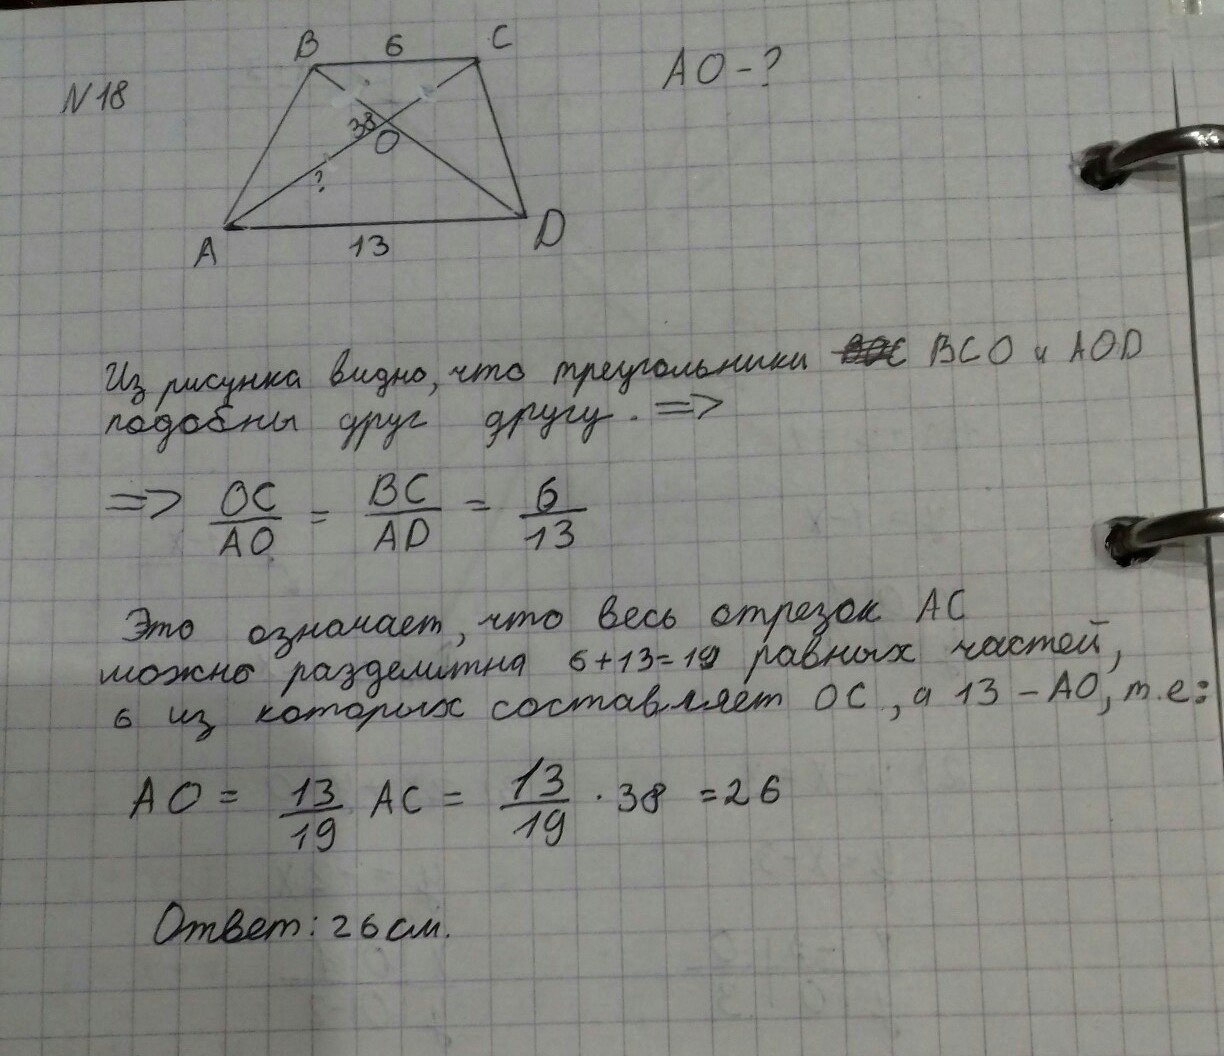 N 18
B 6 C
AO - ?
38
O
?
A 13 D
Из рисунка видно, что треугольники BCO и AOD
подобны друг другу. =>
=> OC/AO = BC/AD = 6/13
Это означает, что весь отрезок AC
можно разделитна 6+13=19 равных частей,
6 из которых составляет OC, а 13 - AO, т.е:
AO = 13/19 AC = 13/19 · 38 = 26
Ответ: 26 см.